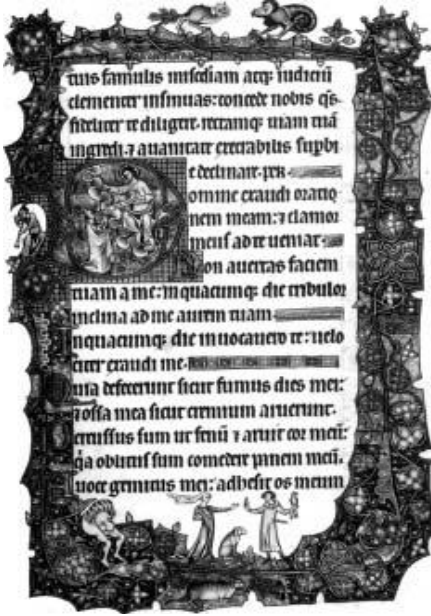 tuis famulis misc̃diam atq; iudiciũ
clementer insinuas: concede nobis q̃s
fideliter te diligere. rectamq; uiam tuã
ingredi. ⁊ a uanitate execrabilis supbi
e declinare. per
omine exaudi oratio
nem meam: ⁊ clamor
meus ad te ueniat
on auertas faciem
tuam a me: in quacumq; die tribulor
inclina ad me aurem tuam
n quacumq; die inuocauero te: uelo
citer exaudi me.
uia defecerunt sicut fumus dies mei:
⁊ ossa mea sicut cremium aruerunt.
ercussus sum ut fenũ ⁊ aruit cor meũ:
q̃a oblitus sum comedere panem meũ.
uoce gemitus mei: adhesit os meum